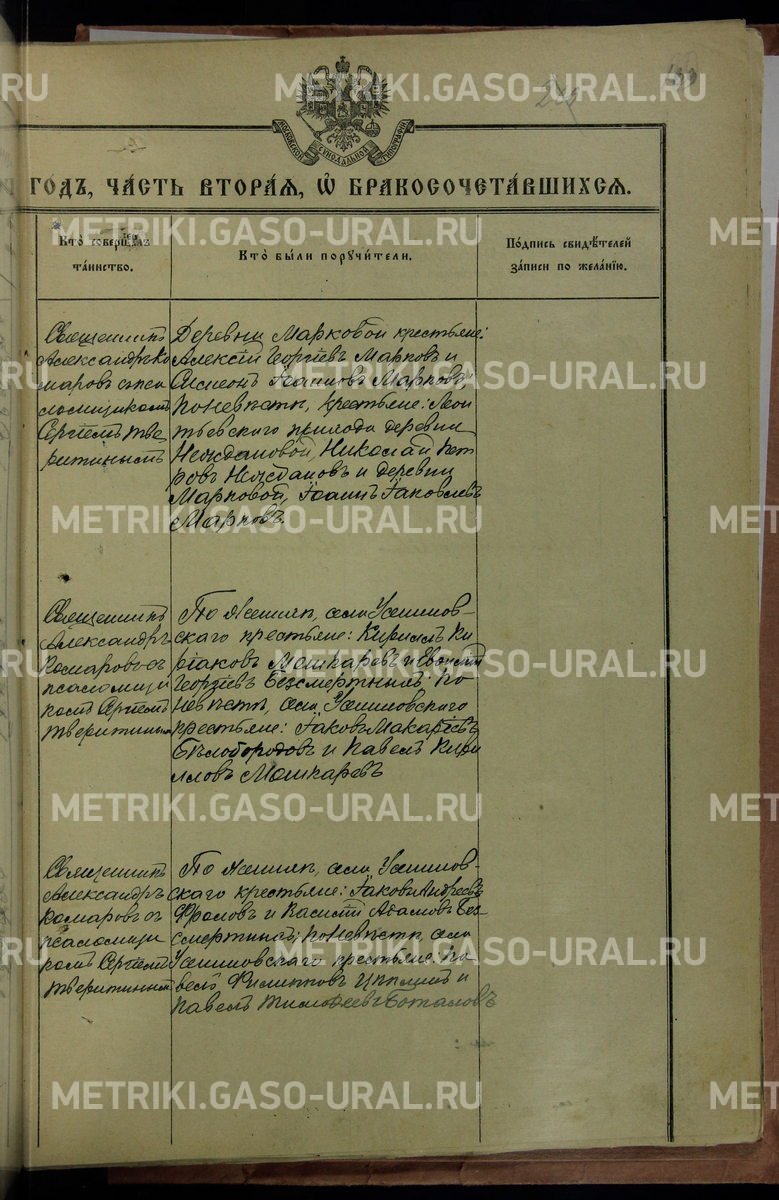 METRIKI.GASO-URAL.RU
МОСКОВСКОЙ СѴНОДАЛЬНОЙ ТИПОГРАФІИ
ГОДЪ, ЧАСТЬ ВТОРАЯ, Ѡ БРАКОСОЧЕТАВШИХСЯ.
Кто совершалъ
таинство.
Кто были поручители.
Подпись свидѣтелей
записи по желанію.
Священникъ
Александръ Ко
маровъ с пса
ломщикомъ
Сергіемъ Тве
ритинымъ
Деревни Марковой крестьяне:
Алексій Георгіевъ Марковъ и
Симеонъ Іоанновъ Марковъ;
по невѣстѣ, крестьяне: Леон
тьевскаго прихода деревни
Неждановой, Николай Пет
ровъ Неждановъ и деревни
Марковой, Іоаннъ Іаковлевъ
Марковъ.
Священникъ
Александръ
Комаровъ съ
псаломщи
комъ Сергіемъ
Тверитинымъ
По женихѣ, села
скаго крестьяне: Кириллъ Ки
ріаковъ Мошкаревъ и
Георгіевъ Безсмертныхъ; по
невѣстѣ, села
крестьяне: Іаковъ Макаріевъ
Бѣлобородовъ и Павелъ Кири
лловъ Мошкаревъ
Священникъ
Александръ
Комаровъ съ
псаломщи
комъ Сергіемъ
Тверитинымъ
По женихѣ, села
скаго крестьяне: Іаковъ Андреевъ
Фроловъ и Адамовъ Без
смертныхъ; по невѣстѣ, села
крестьяне: Па
велъ Филипповъ и
Павелъ Тимоѳеевъ Боталовъ